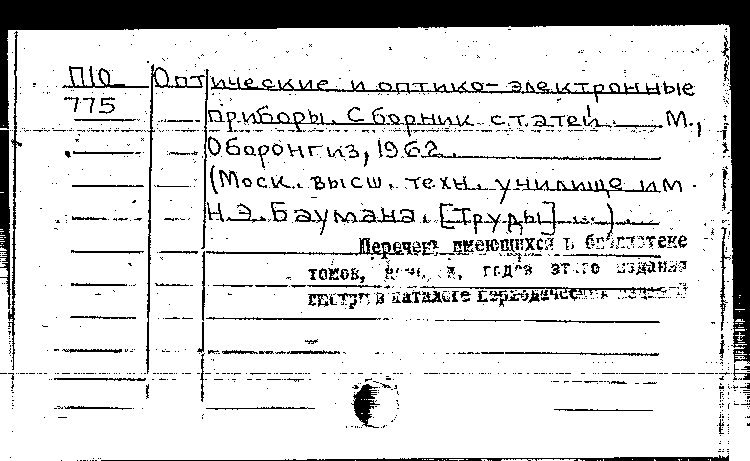 П10 Оптические и оптико-электронные
775 приборы. Сборник статей. М.,
Оборонгиз, 1962.
(Моск. высш. техн. училище им.
Н.Э. Баумана. [Труды] ...).
Перечень имеющихся в библиотеке
томов, годов этого издания
смотри в каталоге периодических изданий